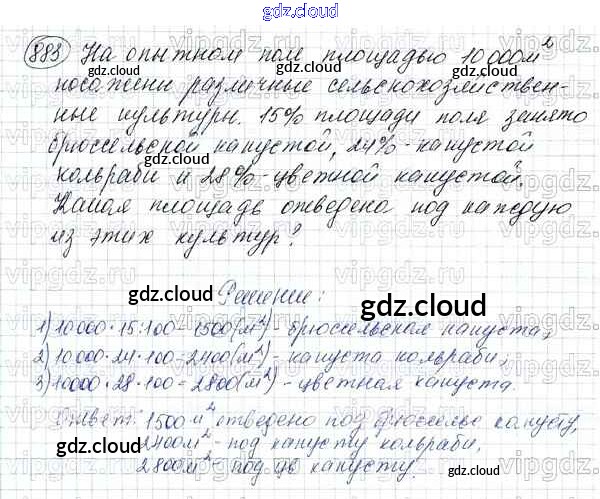 gdz.cloud
883 На опытном поле площадью 10 000м²
посажены различные сельскохозяйствен-
ные культуры. 15% площади поля занято
брюссельской капустой, 24% - капустой
кольраби и 28% - цветной капустой.
Какая площадь отведена под каждую
из этих культур?
Решение:
1) 10 000 · 15 : 100 = 1500 (м²) - брюссельская капуста;
2) 10 000 · 24 : 100 = 2400 (м²) - капуста кольраби;
3) 10000 · 28 : 100 = 2800 (м²) - цветная капуста.
Ответ: 1500 м² отведено под брюссельс капусту,
2400м² - под капусту кольраби,
2800м² - под цв капусту.